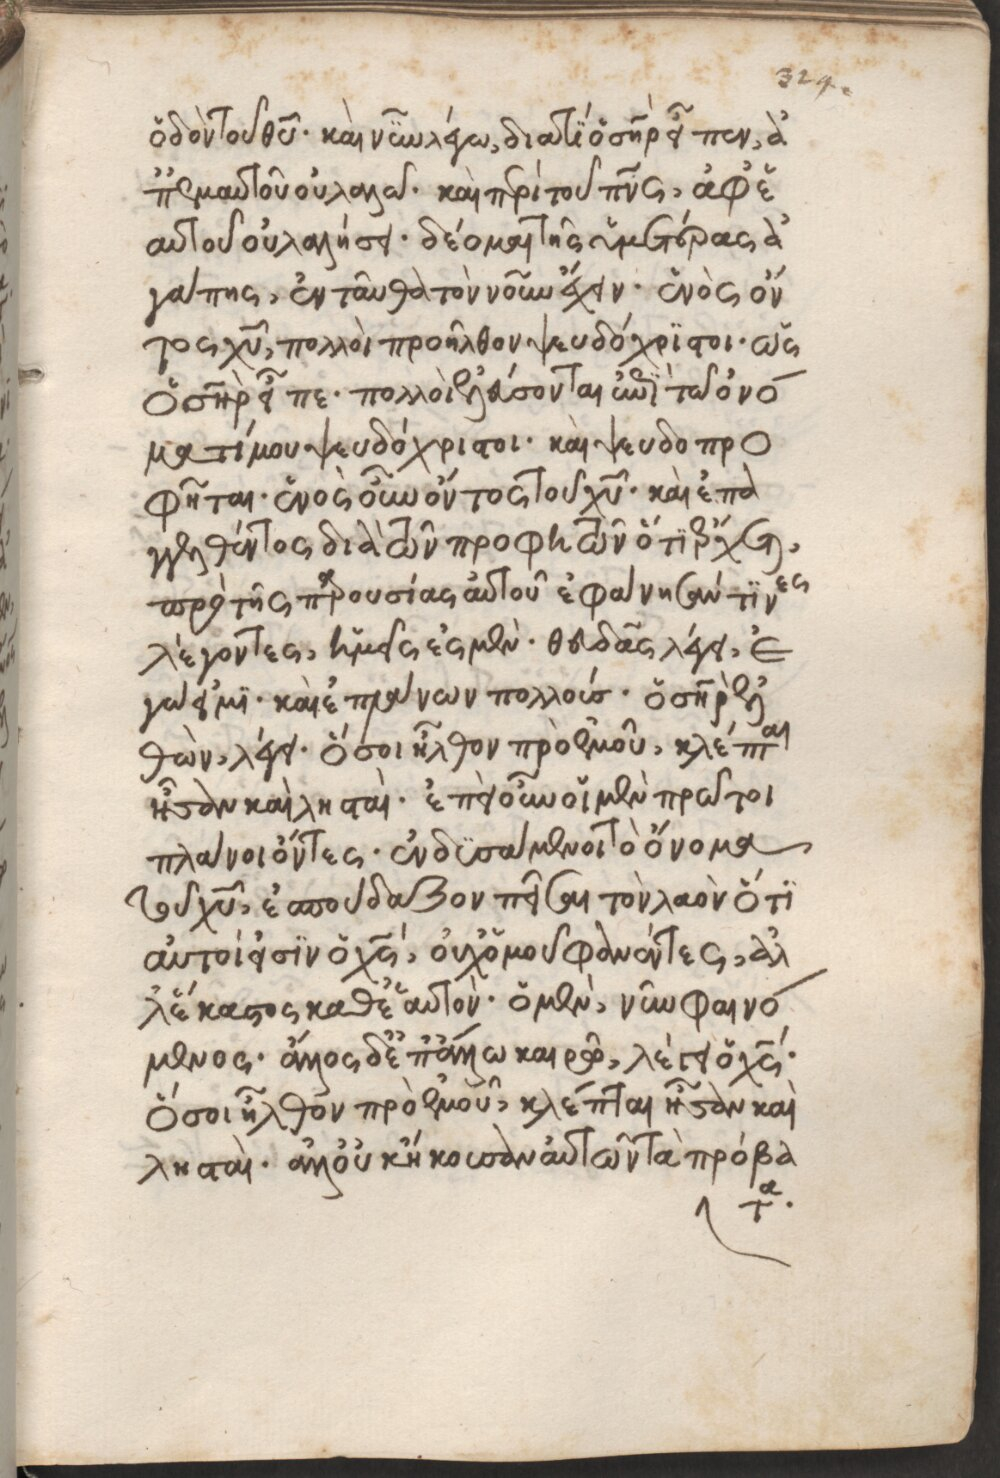 329.
ὁδὸν τοῦ θῡ. καὶ νῦν λέγω, διατί ὁ σηρ εἶπεν, ἀ
π' ἐμαυτοῦ οὐ λαλῶ. καὶ περὶ τοῦ πνς, ἀφ' ἑ
αυτοῦ οὐ λαλήσει. δέομαι τῆς ὑμετέρας ἀ
γάπης, ἐνταῦθα τὸν νοῦν ἔχειν. ἑνὸς ὄν
τος χῡ, πολλοὶ προῆλθον ψευδόχριστοι. ὡς
ὁ σηρ εἶπε. πολλοὶ ἐλεύσονται ἐπὶ τῶ ὀνό
ματί μου ψευδόχριστοι. καὶ ψευδοπρο
φῆται. ἑνὸς οὖν ὄντος τοῦ χῡ. καὶ ἐπα
γγελθέντος διὰ τῶν προφητῶν ὅτι ἔρχεται,
πρὸ τῆς παρουσίας αὐτοῦ ἐφάνησάν τινες
λέγοντες, ἡμεῖς ἐσμέν. θευδᾶς λέγει, ἐ
γώ εἰμι. καὶ ἐπλάνων πολλούς. ὁ σηρ ἐλ
θὼν, λέγει. ὅσοι ἦλθον πρὸ ἐμοῦ, κλέπται
ἦσαν καὶ λησταί. ἐπεὶ οὖν οἱ μὲν πρῶτοι
πλάνοι ὄντες. ἐνδυσάμενοι τὸ ὄνομα
τοῦ χῡ, ἐσπούδαζον πεῖσαι τὸν λαὸν ὅτι
αὐτοί εἰσιν ὁ χς, οὐχ ὁμοῦ φανέντες, ἀλ
λ' ἕκαστος καθ' ἑαυτόν. ὁ μὲν, νῦν φαινό
μενος. ἄλλος δὲ ἐπ' ἄλλω καιρῶ, λέγει ὁ χς.
ὅσοι ἦλθον πρὸ ἐμοῦ, κλέπται ἦσαν καὶ
λησταί. ἀλλ' οὐκ ἤκουσαν αὐτῶν τὰ πρόβα
τα.